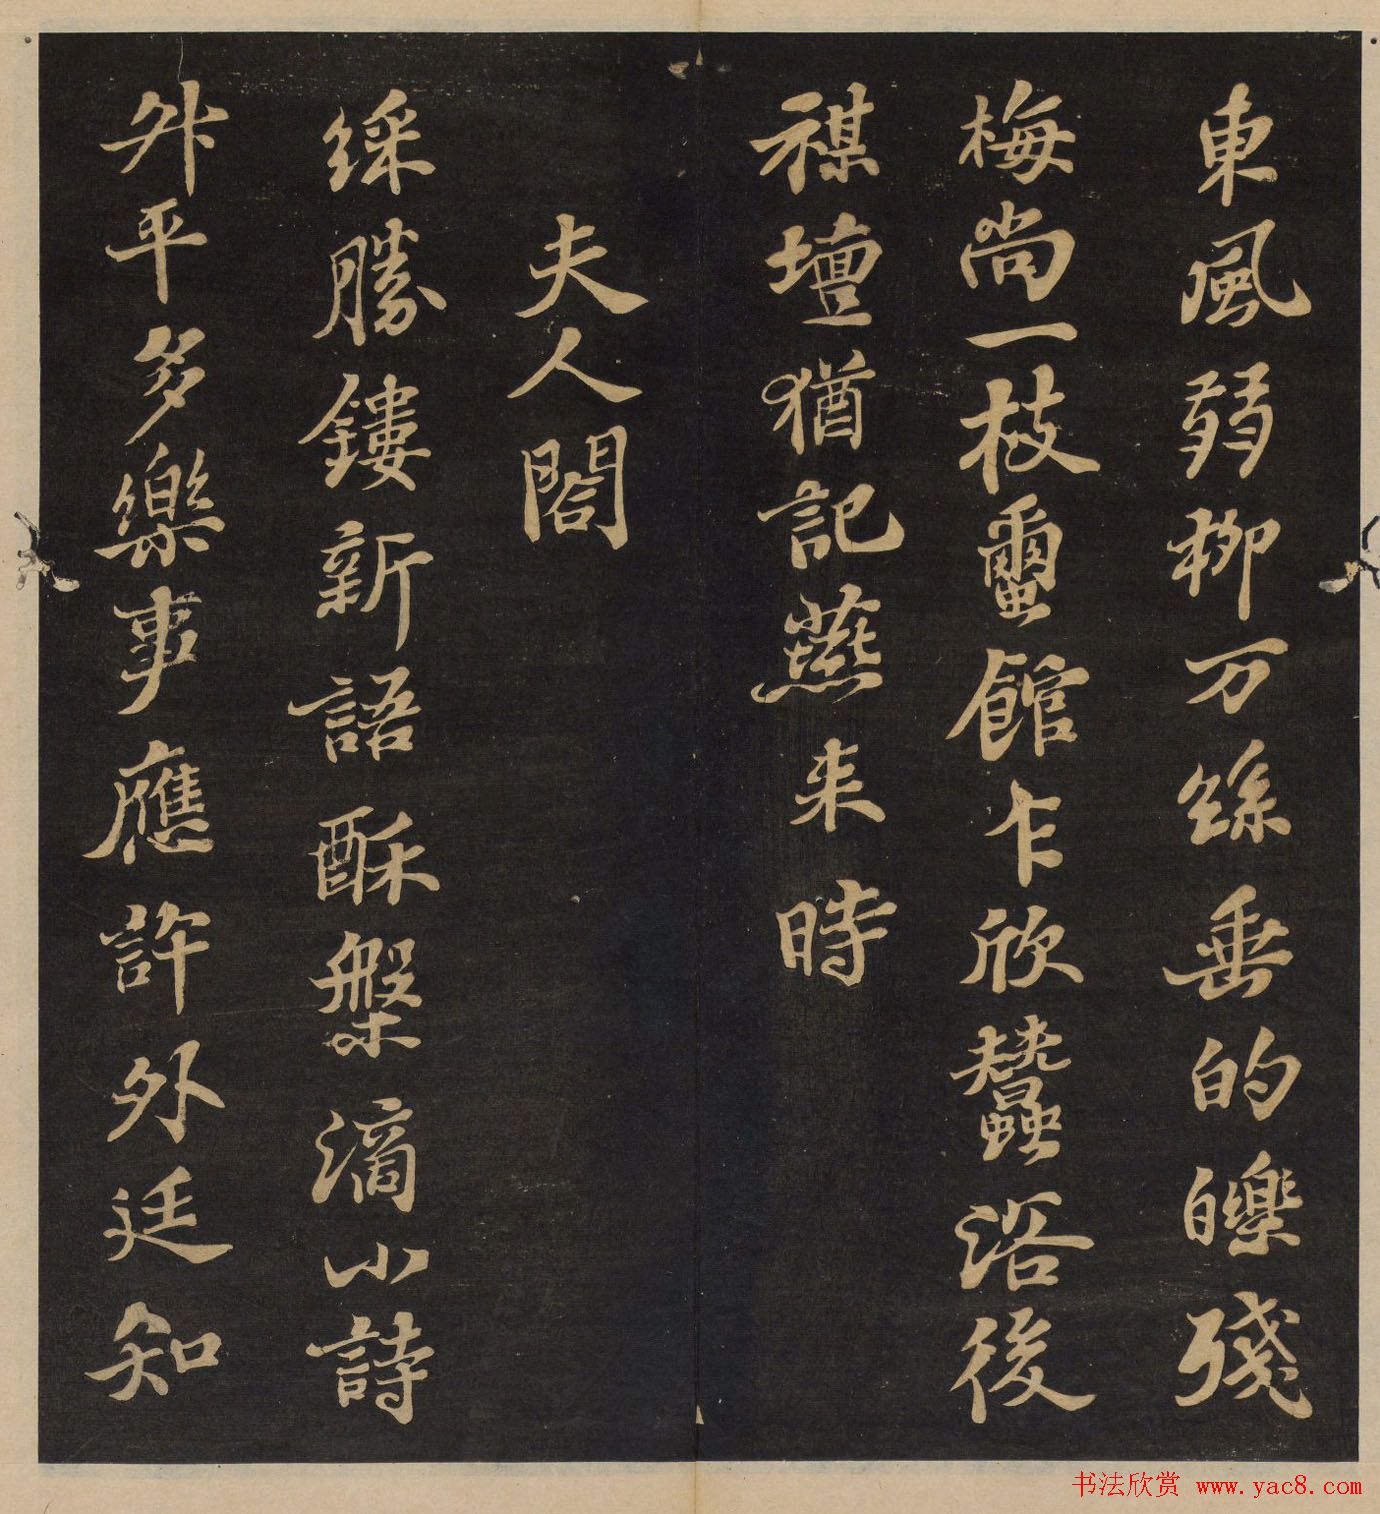 東風弱柳万絲垂的皪殘
梅尚一枝蠒館乍欣蠶浴後
禖壇猶記燕来時
夫人閤
綵勝鏤新語酥槃滴小詩
升平多樂事應許外廷知
书法欣赏 www.yac8.com